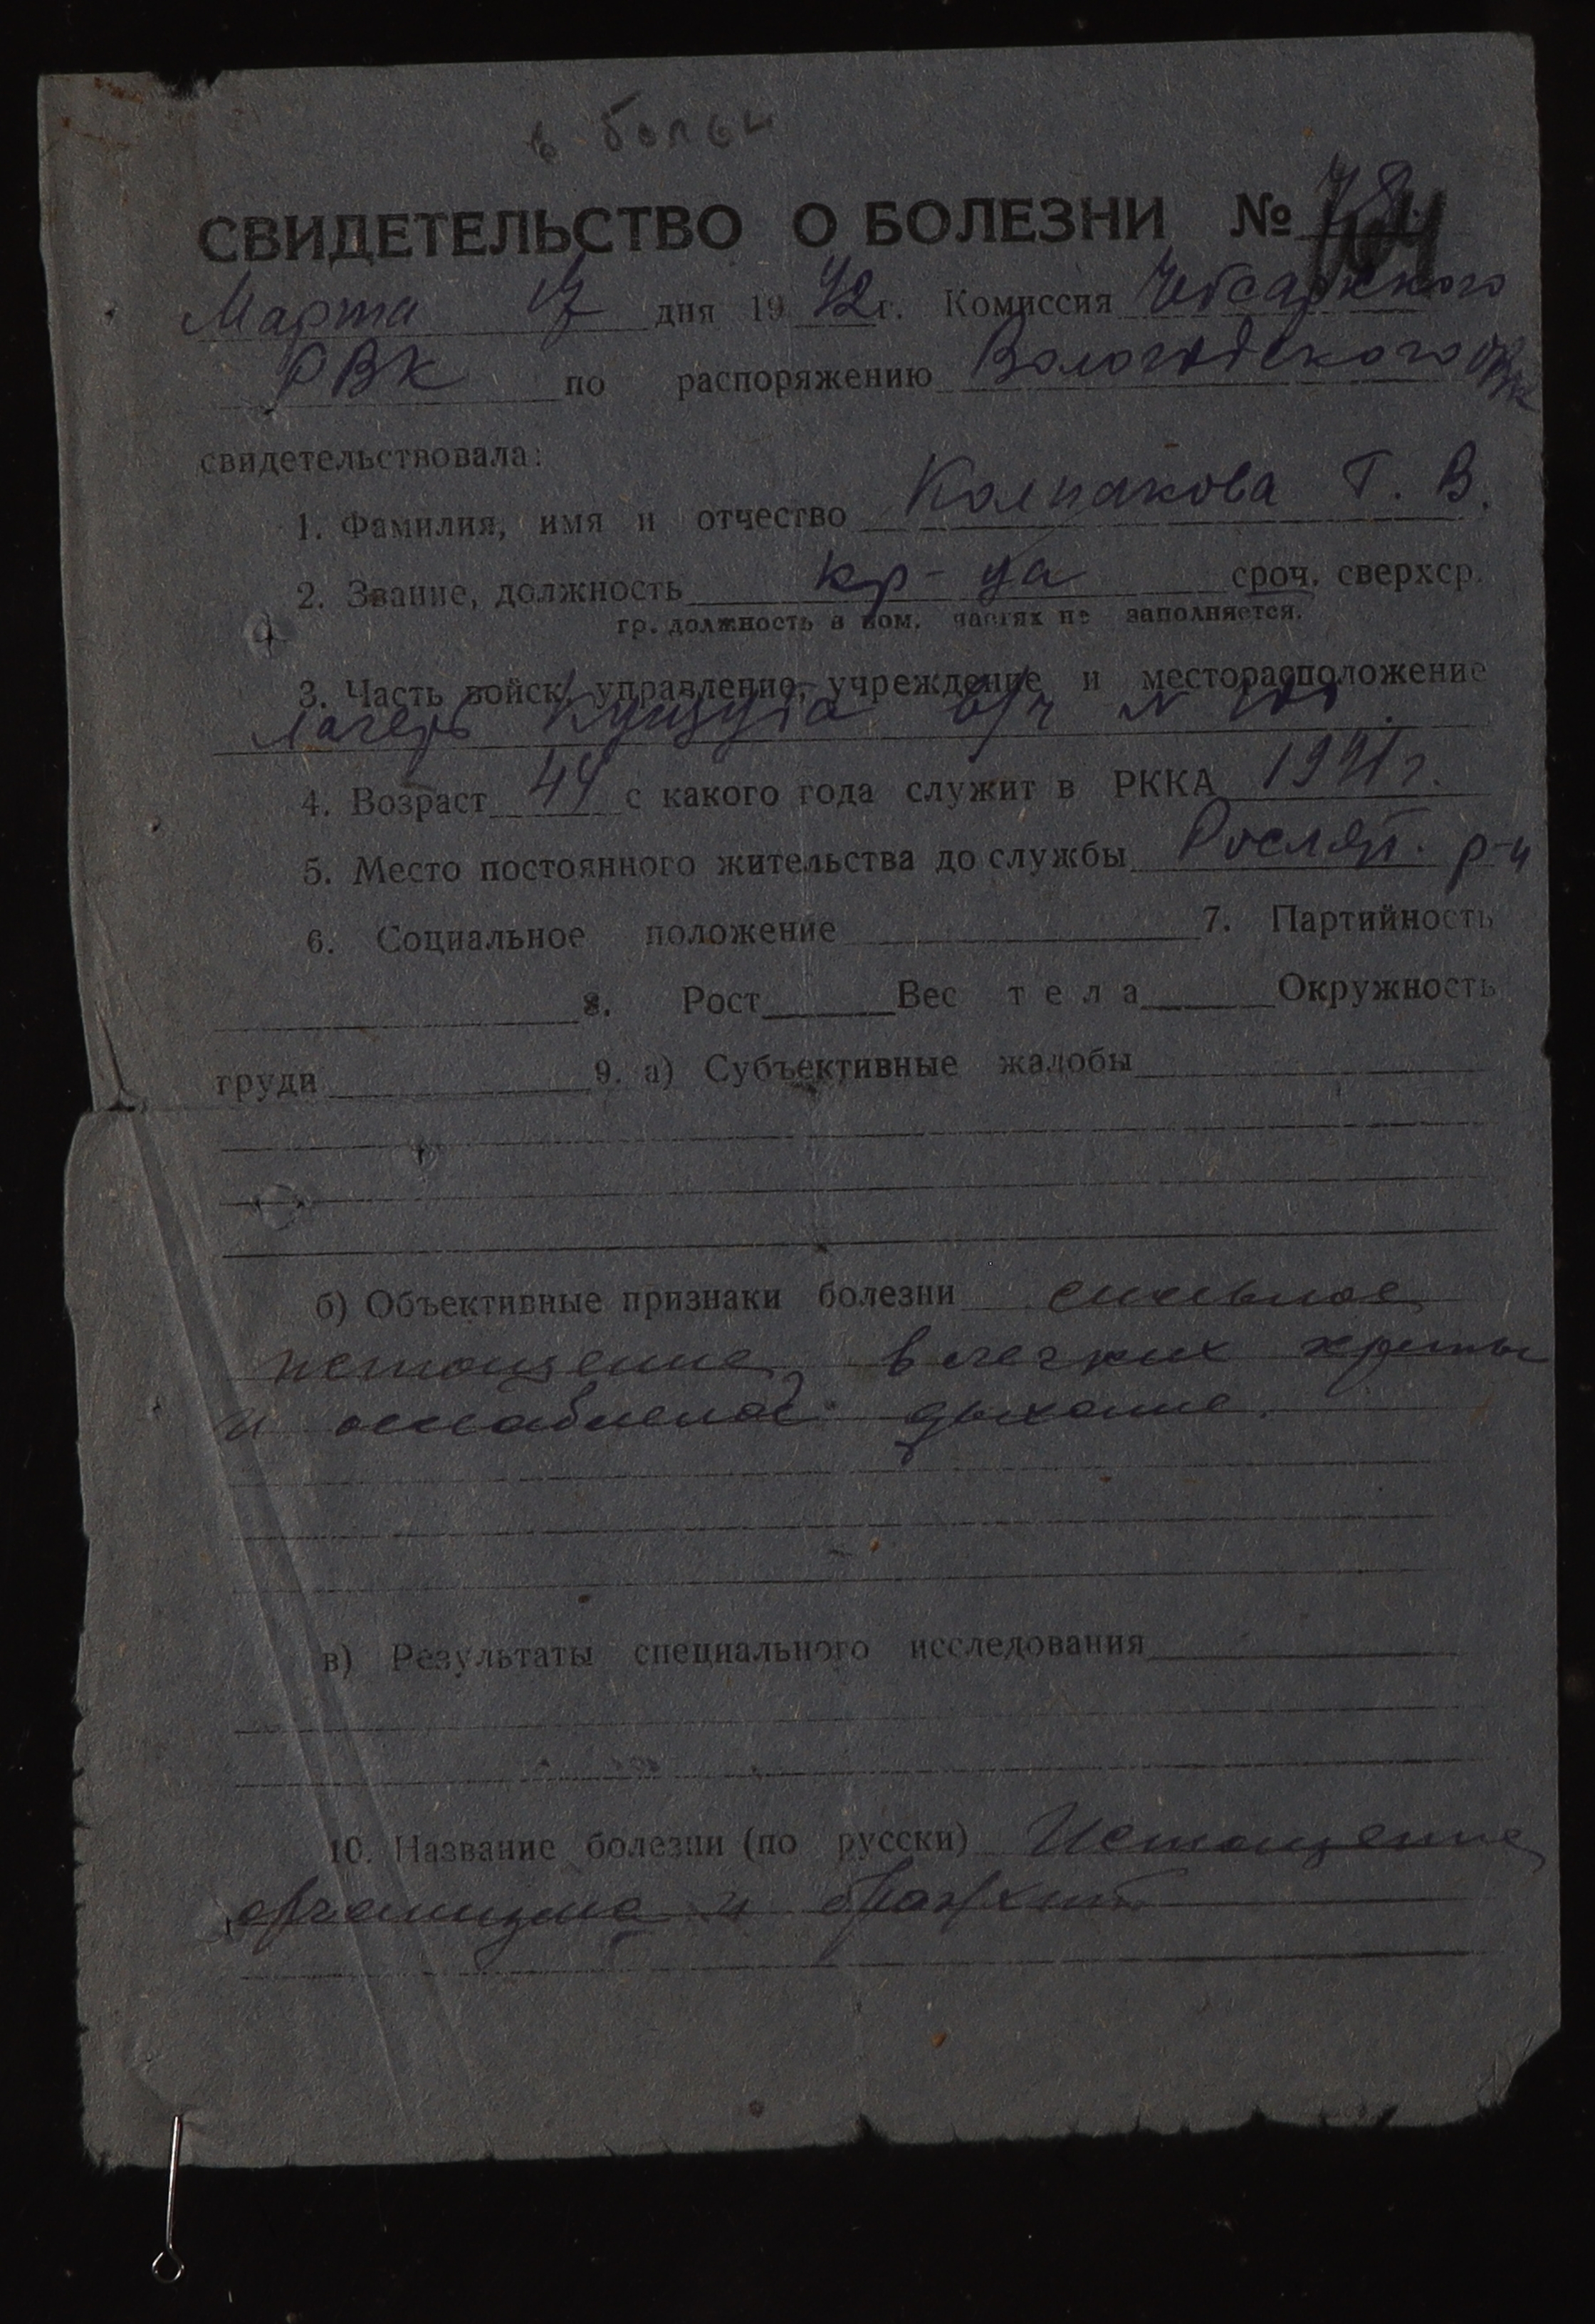 в
СВИДЕТЕЛЬСТВО О БОЛЕЗНИ № 78
Марта 17 дня 1942 г. Комиссия Чебсарского
РВК по распоряжению Вологодского ОВК
свидетельствовала:
1. Фамилия, имя и отчество Колпакова Г. В.
2. Звание, должность кр-ца сроч. сверхср.
гр. должность в ком. частях не заполняется.
3. Часть войск, управление, учреждение и месторасположение
Лагерь Кущуба в/ч №
4. Возраст 44 с какого года служит в РККА 1941 г.
5. Место постоянного жительства до службы Рослят. р-н
6. Социальное положение 7. Партийность
8. Рост Вес тела Окружность
груди 9. а) Субъективные жалобы
б) Объективные признаки болезни сильное
истощение, в легких хрипы
и ослабленое дыхание.
в) Результаты специального исследования
10. Название болезни (по русски) Истощение
организма и бронхит